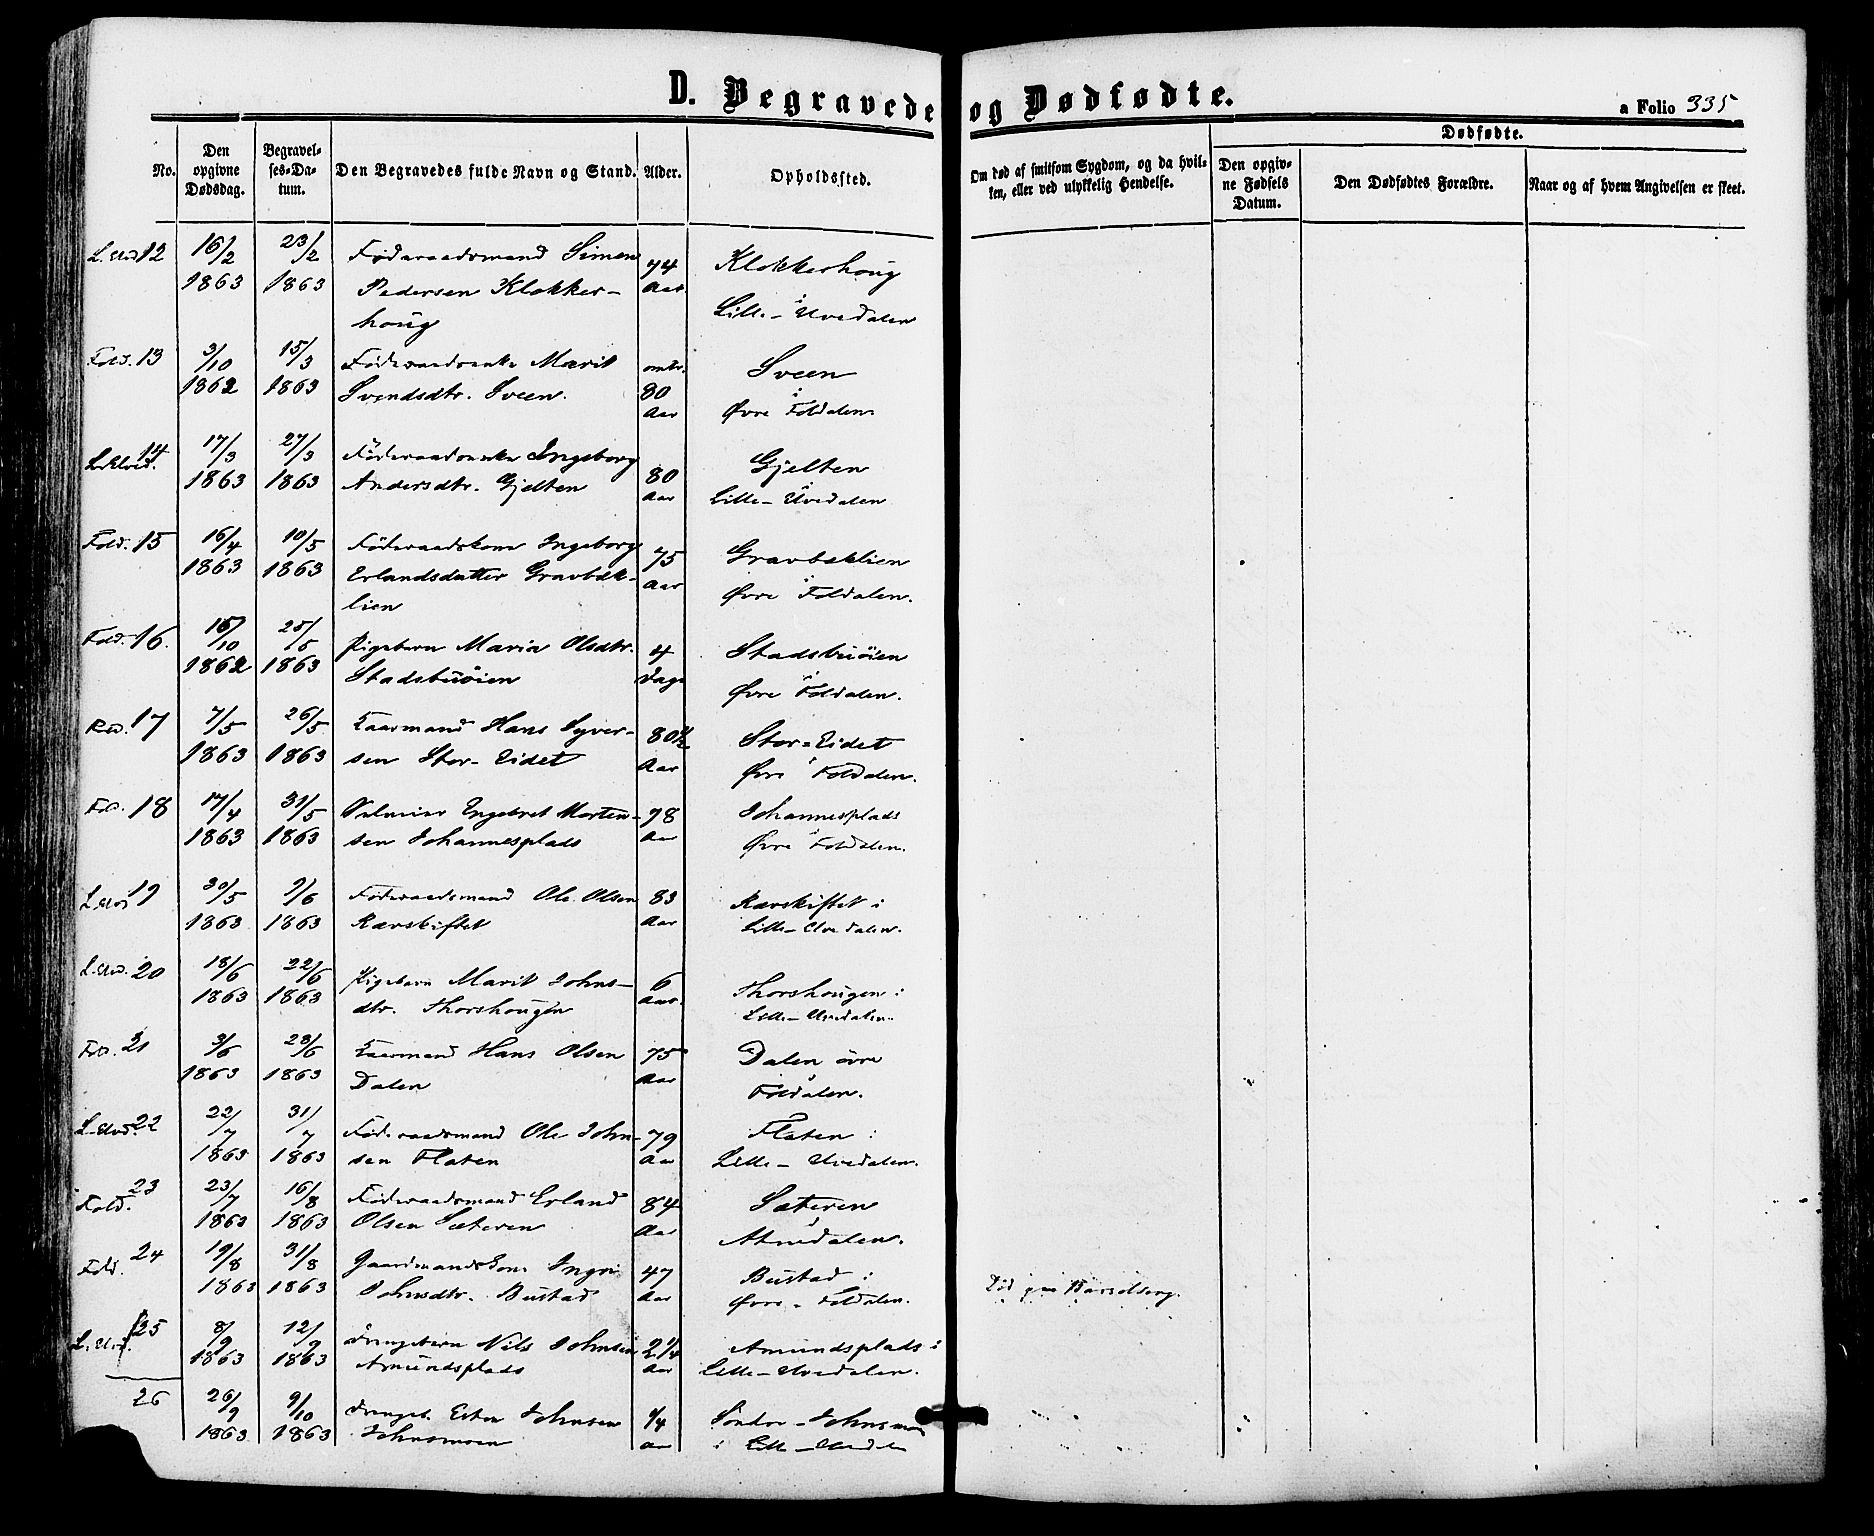 D. Begravede og Dødfødte.
a Folio 335
No.
Den opgivne Dødsdag.
Begravel-ses-Da-tum.
Den Begravedes fulde Navn og Stand.
Alder.
Opholdssted.
Om død af smitsom Sygdom, og da hvil-ken, eller ved ulykkelig Hendelse.
Dødfødte.
Den opgiv-ne Fødsels Datum.
Den Dødfødtes Forældre.
Naar og af hvem Angivelsen er skeet.
12 16/2 23/2 Föderaadsmand Simen 74 Klokkerhoug
1863 1863 Pedersen Klokker- Aar
houg Lille-Uvedalen
Fold. 13 3/10 15/3 Föderaadsenke Marit omtr. Sveen
1862 1863 Svendsdtr. Sveen. 80
Aar Øvre Foldalen
14 17/3 27/3 Föderaadsenke Ingeborg Gjelten
1863 1863 Andersdtr. Gjelten 80
Aar Lille-Uvedalen
Fold. 15 16/4 10/5 Föderaadskone Ingeborg 75 Gravbæklien
1863 1863 Erlandsdatter Gravbæk- Aar
lien Øvre Foldalen.
Fold. 16. /10 25/5 Pigebarn Maria Olsdtr. 4 Stadsbuöien
1862 1863 Stadsbuöien Dage
Øvre Foldalen.
17 7/5 26/5 Kaarmand Hans Syver- 80½ Stor-Eidet
1863 1863 sen Stor-Eidet Aar
Øvre Foldalen.
18 17/4 31/5 Engebret Morten- 78 Johannesplads
1863 1863 sen Johannesplads Aar Øvre Foldalen.
19 30/5 9/6 Föderaadsmand Ole Olsen 83 Rævskiftet i
1863 1863 Rævskiftet Aar Lille-Uvedalen.
L. Uvd. 20 18/6 22/6 Pigebarn Marit Johns- 6 Thorshougen i
1863 1863 dtr. Thorshougen Aar. Lille-Uvedalen.
21 3/6 28/6 Kaarmand Hans Olsen 75 Dalen övre
1863 1863 Dalen Aar Foldalen.
L. Uvd. 22 22/7 31/7 Föderaadsmand Ole John- 79 Flaten i
1863 1863 sen Flaten Aar Lille-Uvedalen.
Fold. 23 23/7 16/8 Föderaadsmand Erland 84 Sæteren
1863 1863 Olsen Sæteren Aar Atnedalen.
Fold. 24 19/8 31/8 Gaardmandskone 47 Bustad i
1863 1863 Johnsdtr. Bustad Aar Øvre-Foldalen.
Död paa Barselseng.
L. Uvd. 25 8/9 12/9 Drengebarn Nils Johnsen 2¼ Amundsplads i
1863 1863 Amundsplads Aar Lille-Uvedalen.
26 26/9 9/10 Drengeb. Johnsen ¼ Söndre-Johnsmoen
1863 1863 Johnsmoen Aar i Lille-Uvedalen